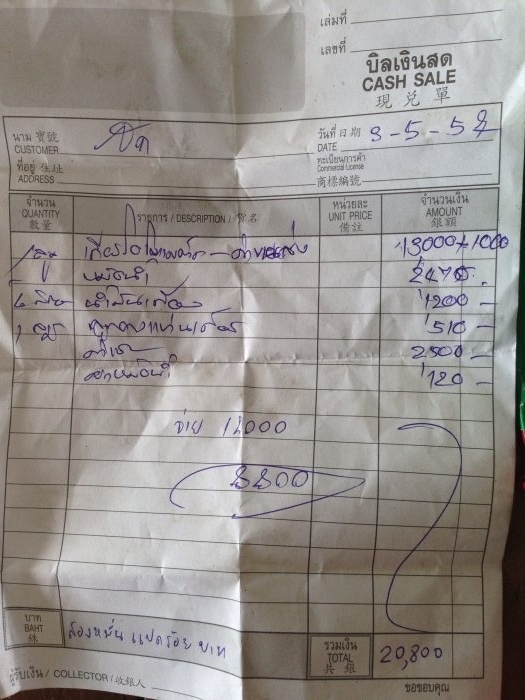 เล่มที่
เลขที่
บิลเงินสด
CASH SALE
現 兌 單
นาม 寶號
CUSTOMER
วันที่ 日 期
DATE 3-5-52
ที่อยู่ 住址
ADDRESS
ทะเบียนการค้า
Commercial License
商標編號
จำนวน รายการ / DESCRIPTION / 貨 名 หน่วยละ จำนวนเงิน
QUANTITY UNIT PRICE AMOUNT
數 量 備 註 銀 額
13000+1000
หม้อน้ำ 2470.
น้ำมันเครื่อง 1200 -
510 -
ค่าแรง 2500 -
120 -
จ่าย 12000
8800
บาท
BAHT
銖
สองหมื่น แปดร้อย บาท
รวมเงิน
TOTAL
共 銀
20,800
ผู้รับเงิน / COLLECTOR / 收銀人
ขอขอบคุณ